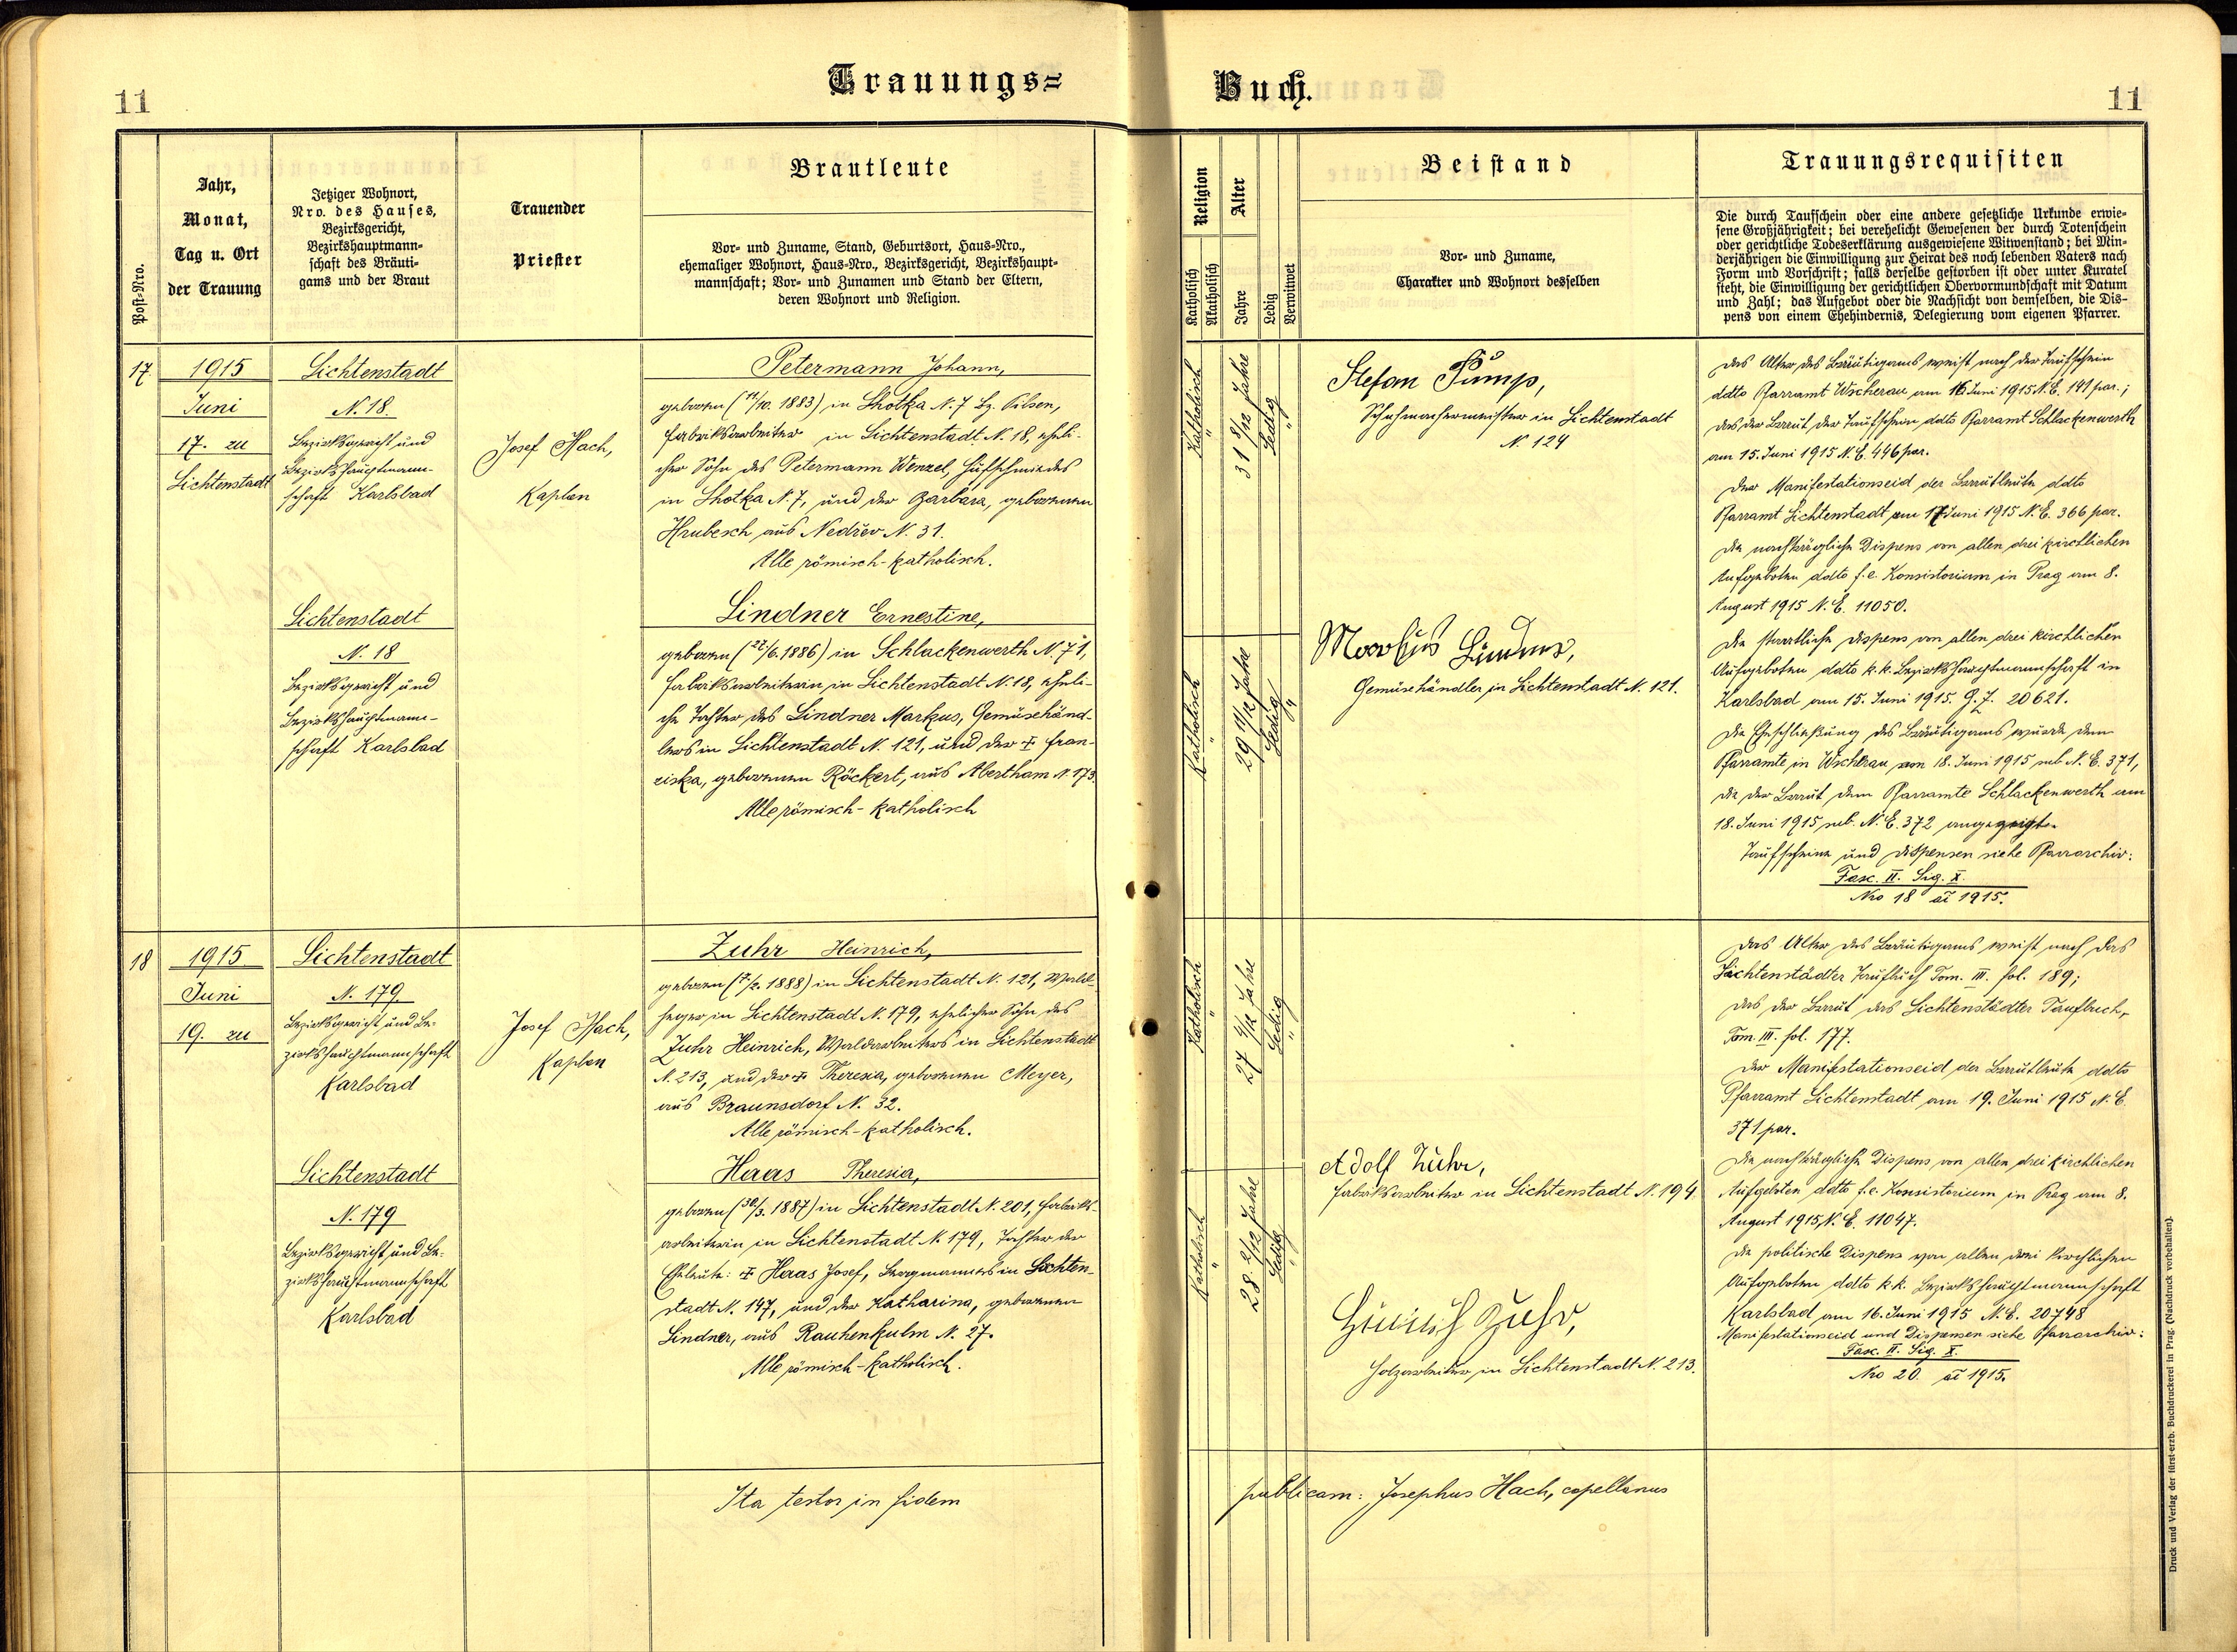 11
Trauungs=
Buch.
11
Post-Nro.
Jahr,
Monat,
Tag u. Ort
der Trauung
Jetziger Wohnort,
Nro. des Hauses,
Bezirksgericht,
Bezirkshauptmann=
schaft des Bräuti=
gams und der Braut
Trauender
Priester
Brautleute
Vor= und Zuname, Stand, Geburtsort, Haus=Nro.,
ehemaliger Wohnort, Haus=Nro., Bezirksgericht, Bezirkshaupt=
mannschaft; Vor= und Zunamen und Stand der Eltern,
deren Wohnort und Religion.
Religion
Katholisch
Akatholisch
Alter
Jahre
Ledig
Verwitwet
Beistand
Vor= und Zuname,
Charakter und Wohnort desselben
Trauungsrequisiten
Die durch Taufschein oder eine andere gesetzliche Urkunde erwie=
sene Großjährigkeit; bei verehelicht Gewesenen der durch Totenschein
oder gerichtliche Todeserklärung ausgewiesene Witwenstand; bei Min=
derjährigen die Einwilligung zur Heirat des noch lebenden Vaters nach
Form und Vorschrift; falls derselbe gestorben ist oder unter Kuratel
steht, die Einwilligung der gerichtlichen Obervormundschaft mit Datum
und Zahl; das Aufgebot oder die Nachsicht von demselben, die Dis=
pens von einem Ehehindernis, Delegierung vom eigenen Pfarrer.
17
1915
Juni
17. zu
Lichtenstadt
Lichtenstadt
N. 18.
Bezirksgericht und
Bezirkshauptmann-
schaft Karlsbad
Josef Hach,
Kaplan
Petermann Johann,
geboren (14/10. 1883) in Lhotka N. 7 Bz. Pilsen,
Fabriksarbeiter in Lichtenstadt N. 18, eheli-
cher Sohn des Petermann Wenzel, Hufschmiedes
in Lhotka N. 7, und der Barbara, geborenen
Hrubesch aus Nedřev N. 31.
Alle römisch-katholisch.
Lichtenstadt
N. 18
Bezirksgericht und
Bezirkshauptmann-
schaft Karlsbad
Lindner Ernestine,
geboren (22/6. 1886) in Schlackenwerth N. 71,
Fabriksarbeiterin in Lichtenstadt N. 18, eheli-
che Tochter des Lindner Markus, Gemüsehänd-
lers in Lichtenstadt N. 121, und der † Fran-
ziska, geborenen Röckert, aus Abertham N. 173.
Alle römisch-katholisch
Katholisch
"
31 8/12 Jahre
Ledig
"
Stefan Pump,
Schuhmachermeister in Lichtenstadt
N. 124
Katholisch
"
29 11/12 Jahre
Ledig
"
Markus Lindner,
Gemüsehändler in Lichtenstadt N. 121.
Das Alter des Bräutigams weist nach der Taufschein
ddto Pfarramt Wscherau am 16 Juni 1915 N. E. 141 par.;
das der Braut der Taufschein ddto Pfarramt Schlackenwerth
am 15. Juni 1915 N. E. 446 par.
Der Manifestationseid der Brautleute ddto
Pfarramt Lichtenstadt am 17 Juni 1915 N. E. 366 par.
Die nachträgliche Dispens von allen drei kirchlichen
Aufgeboten ddto f. e. Konsistorium in Prag am 8.
August 1915 N. E. 11050.
Die staatliche Dispens von allen drei kirchlichen
Aufgeboten ddto k. k. Bezirkshauptmannschaft in
Karlsbad am 15. Juni 1915. G. Z. 20621.
Die Eheschließung des Bräutigams wurde dem
Pfarramte in Wscherau am 18. Juni 1915 sub N. E. 371,
die der Braut dem Pfarramte Schlackenwerth am
18. Juni 1915 sub. N. E. 372 angezeigt.
Taufscheine und Dispensen siehe Pfarrarchiv:
Fasc. II. Sig. X.
Nro 18 ai 1915.
18
1915
Juni
19. zu
Lichtenstadt
N. 179
Bezirksgericht und Be-
zirkshauptmannschaft
Karlsbad
Josef Hach,
Kaplan
Zuhr Heinrich,
geboren (7/2. 1888) in Lichtenstadt N. 121, Wald-
heger in Lichtenstadt N. 179, ehelicher Sohn des
Zuhr Heinrich, Waldarbeiters in Lichtenstadt
N. 213, und der † Theresia, geborenen Meyer,
aus Braunsdorf N. 32.
Alle römisch-katholisch.
Lichtenstadt
N. 179
Bezirksgericht und Be-
zirkshauptmannschaft
Karlsbad
Haas Theresia,
geboren (30/3. 1887) in Lichtenstadt N. 201, Fabriks-
arbeiterin in Lichtenstadt N. 179, Tochter der
Eheleute: † Haas Josef, Bergmannes in Lichten-
stadt N. 147, und der Katharina, geborenen
Lindner, aus Rauhenkulm N. 27.
Alle römisch-katholisch.
Katholisch
"
27 4/12 Jahre
Ledig
"
Katholisch
"
28 2/12 Jahre
Ledig
"
Adolf Zuhr,
Fabriksarbeiter in Lichtenstadt N. 194.
Heinrich Zuhr,
Holzarbeiter in Lichtenstadt N. 213.
Das Alter des Bräutigams weist nach das
Lichtenstädter Taufbuch Tom. III. fol. 189;
das der Braut das Lichtenstädter Taufbuch,
Tom. III. fol. 177.
Der Manifestationseid der Brautleute ddto
Pfarramt Lichtenstadt am 19. Juni 1915 N. E.
371 par.
Die nachträgliche Dispens von allen drei kirchlichen
Aufgeboten ddto f. e. Konsistorium in Prag am 8.
August 1915, N. E. 11047.
Die politische Dispens von allen drei kirchlichen
Aufgeboten ddto k. k. Bezirkshauptmannschaft
Karlsbad am 16. Juni 1915 N. E. 20748
Manifestationseid und Dispensen siehe Pfarrarchiv:
Fasc. II. Sig. X.
Nro 20 ai 1915.
Ita testor in fidem
publicam: Josephus Hach, capellanus
Druck und Verlag der fürst-erzb. Buchdruckerei in Prag. (Nachdruck vorbehalten).